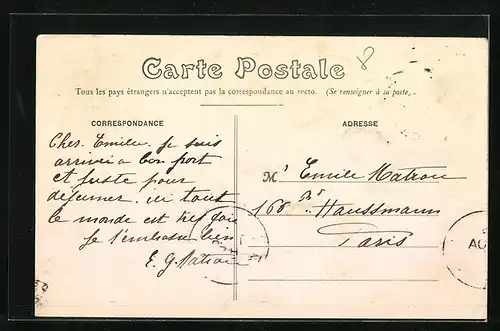 Carte Postale
Tous les pays étrangers n'acceptent pas la correspondance au recto. (Se renseigner à la poste,
CORRESPONDANCE
ADRESSE
Cher Emile. Je suis
arrivé a bon port
et juste pour
déjeuner. ici tout
le monde est très gai
Je t'embrasse bien
E. G. Matrou
Mr Emile Matrou
166 Bd Haussmann
Paris
AO